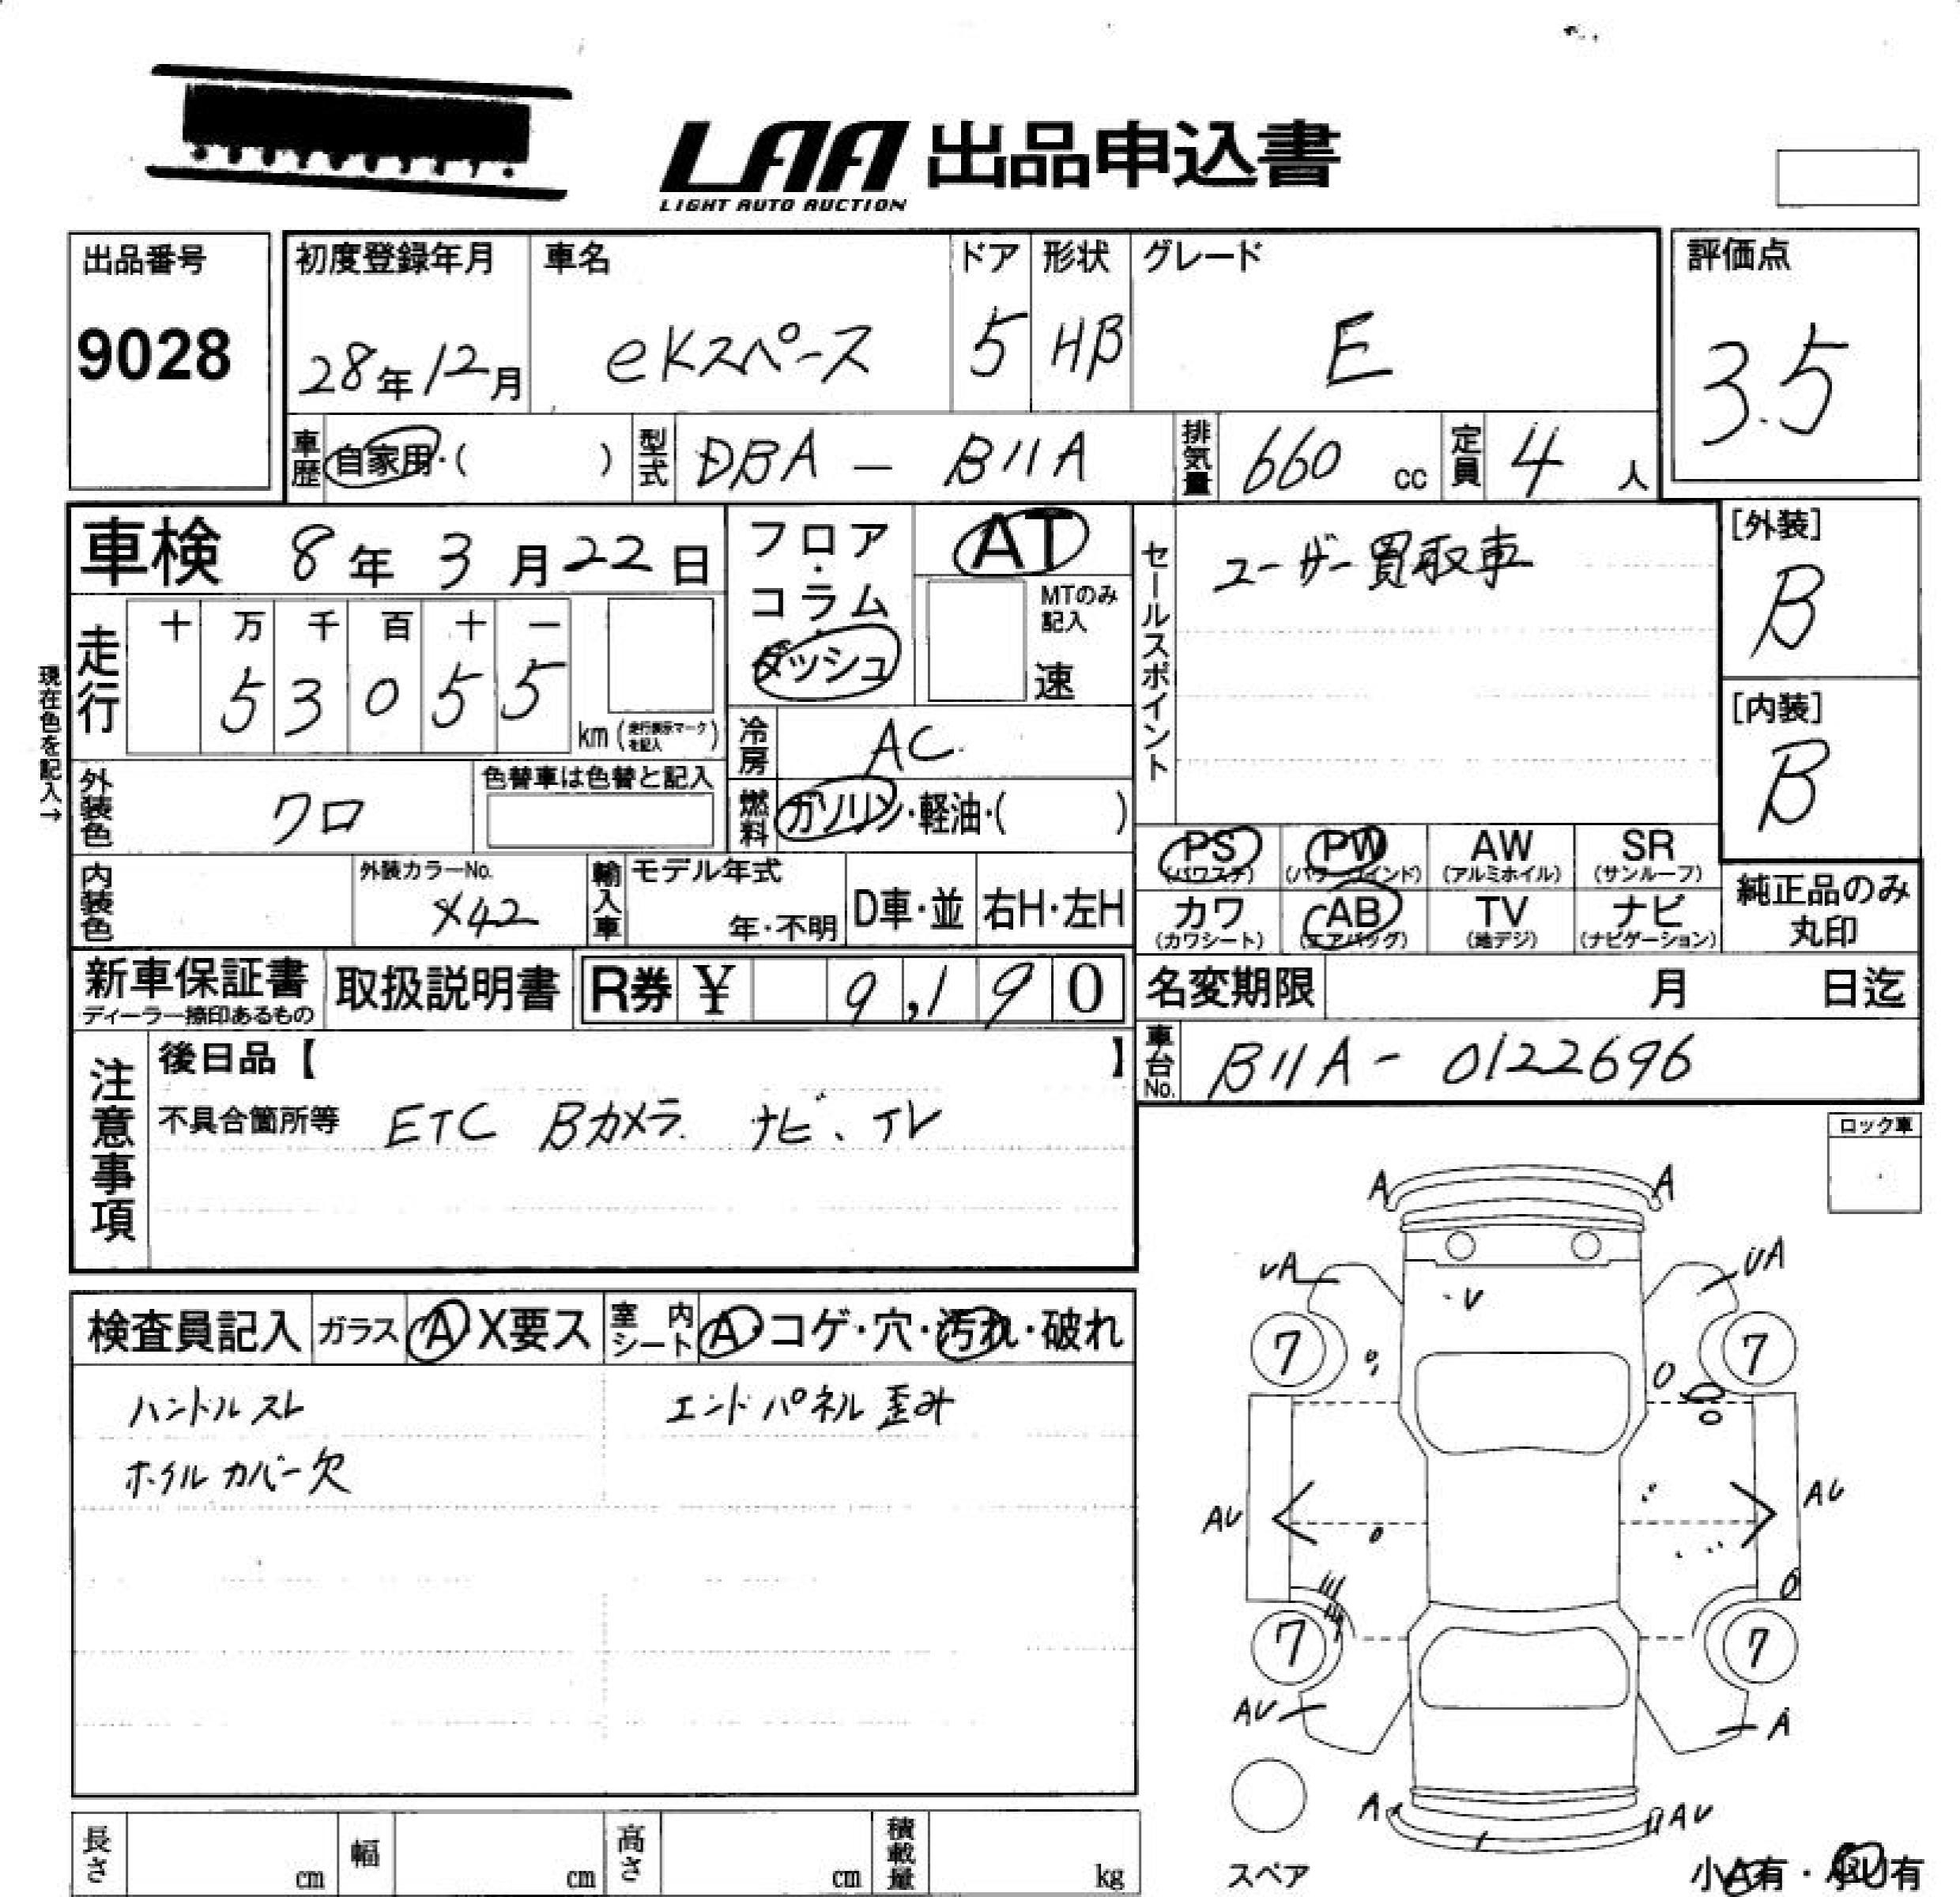 LAA 出品申込書
LIGHT AUTO AUCTION
出品番号
9028
初度登録年月
28年12月
車名
eKスペース
ドア
5
形状
HB
グレード
E
評価点
3.5
車歴
自家用・( )
型式
DBA - B11A
排気量
660 cc
定員
4 人
車検 8年 3月 22日
フロア・コラム・ダッシュ
AT
MTのみ記入
速
セールスポイント
ユーザー買取車
[外装]
B
[内装]
B
現在色を記入→
走行
十 万 千 百 十 一
5 3 0 5 5
km (走行表示マークを記入)
冷房
AC
燃料
ガソリン・軽油・( )
外装色
クロ
色替車は色替と記入
内装色
外装カラーNo.
X42
輸入車
モデル年式
年・不明
D車・並
右H・左H
PS (パワステ)
PW (パワーウインド)
AW (アルミホイル)
SR (サンルーフ)
カワ (カワシート)
AB (エアバッグ)
TV (地デジ)
ナビ (ナビゲーション)
純正品のみ丸印
新車保証書
ディーラー捺印あるもの
取扱説明書
R券 ¥ 9,190
名変期限 月 日迄
車台No.
B11A - 0122696
注意事項
後日品【 】
不具合箇所等 ETC Bカメラ ナビ、テレ
ロック車
検査員記入
ガラス
A X要ス
室内シート
A コゲ・穴・汚れ・破れ
ハンドルスレ
エンドパネル歪み
ホイルカバー欠
A A
UA UA
U
7 7
AU AU
7 7
AU A
A AU
スペア
小A有・小U有
長さ cm
幅 cm
高さ cm
積載量 kg